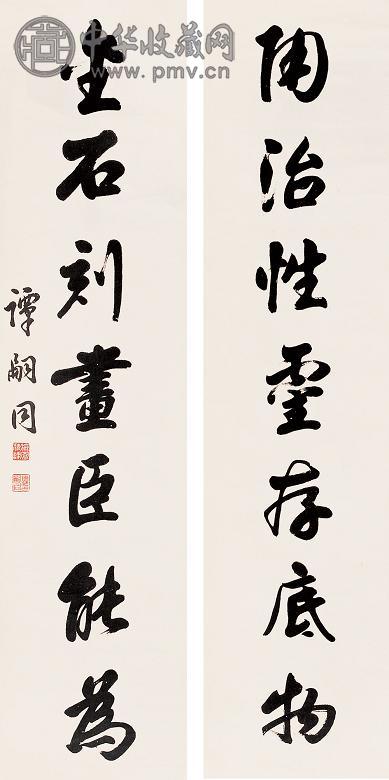 中华收藏网
www.pmv.cn
陶冶性靈存底物
金石刻畫臣能為
譚嗣同